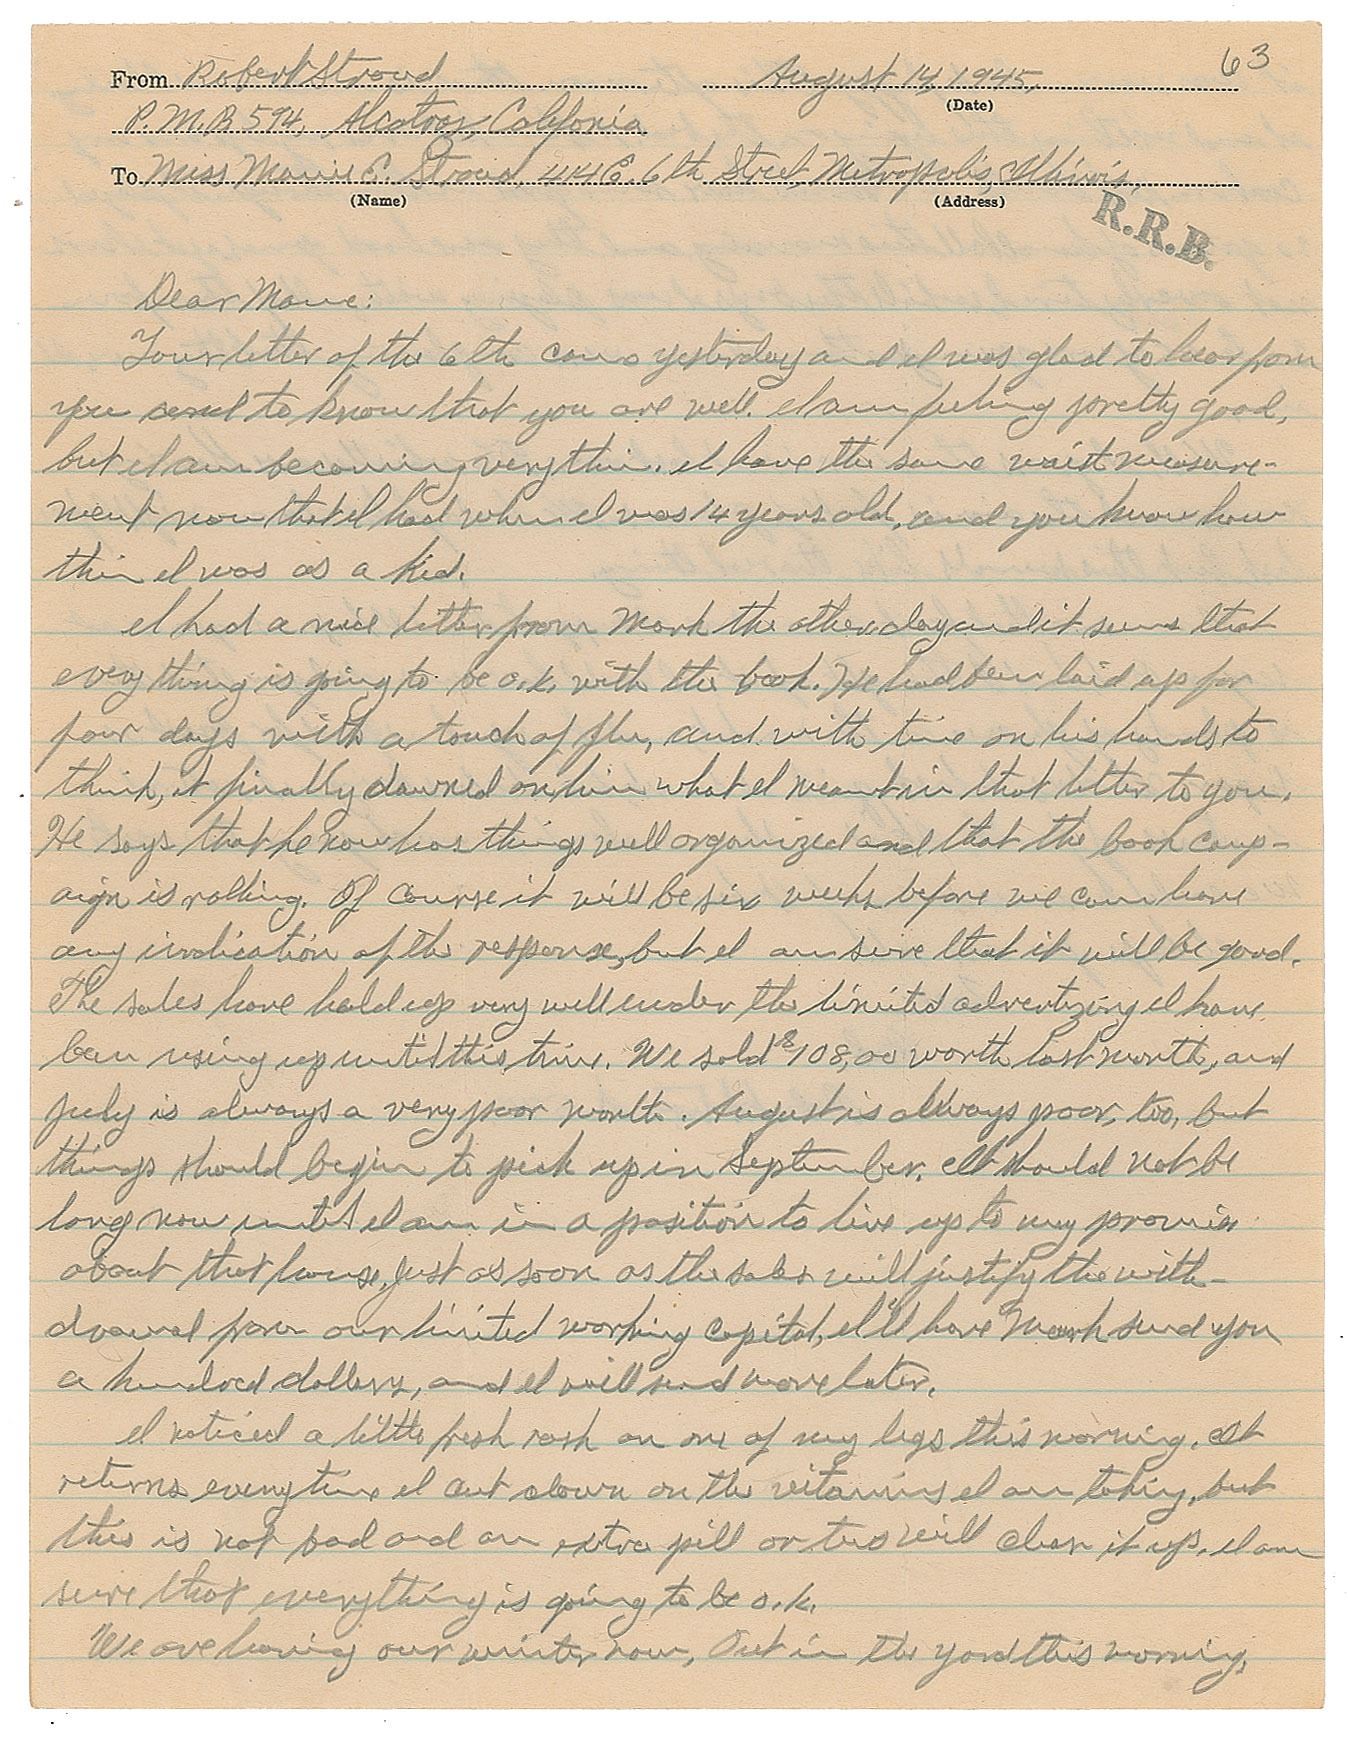 63
From Robert Stroud August 14, 1945,
(Date)
P.M.B 594, Alcatraz, Califonia
To Miss Mamie E. Stroud, 414 E. 6th Street, Metropolis, Illinois,
(Name) (Address)
R.R.B.
Dear Mame:
Your letter of the 6th came yesterday and I was glad to hear from
you and to know that you are well. I am feeling pretty good,
but I am becoming very thin. I have the same waist measure-
ment now that I had when I was 14 years old, and you know how
thin I was as a kid.
I had a nice letter from Mark the other day and it seems that
everything is going to be o.k. with the book. He had been laid up for
four days with a touch of flu, and with time on his hands to
think, it finally dawned on him what I meant in that letter to you.
He says that he now has things well organized and that the book camp-
aign is rolling. Of course it will be six weeks before we can have
any indication of the response, but I am sure that it will be good.
The sales have held up very well under the limited advertizing I have
been using up until this time. We sold $108,00 worth last month, and
July is always a very poor month. August is always poor, too, but
things should begin to pick up in September. It should not be
long now until I am in a position to live up to my promise
about that house. Just as soon as the sales will justify the with-
drawal from our limited working capital, I'll have Mark send you
a hundred dollars, and I will send more later.
I noticed a little fresh rash on one of my legs this morning. It
returns every time I cut down on the vitamins I am taking, but
this is not bad and an extra pill or two will clear it up. I am
sure that everything is going to be o.k.
We are having our winter now, Out in the yard this morning,